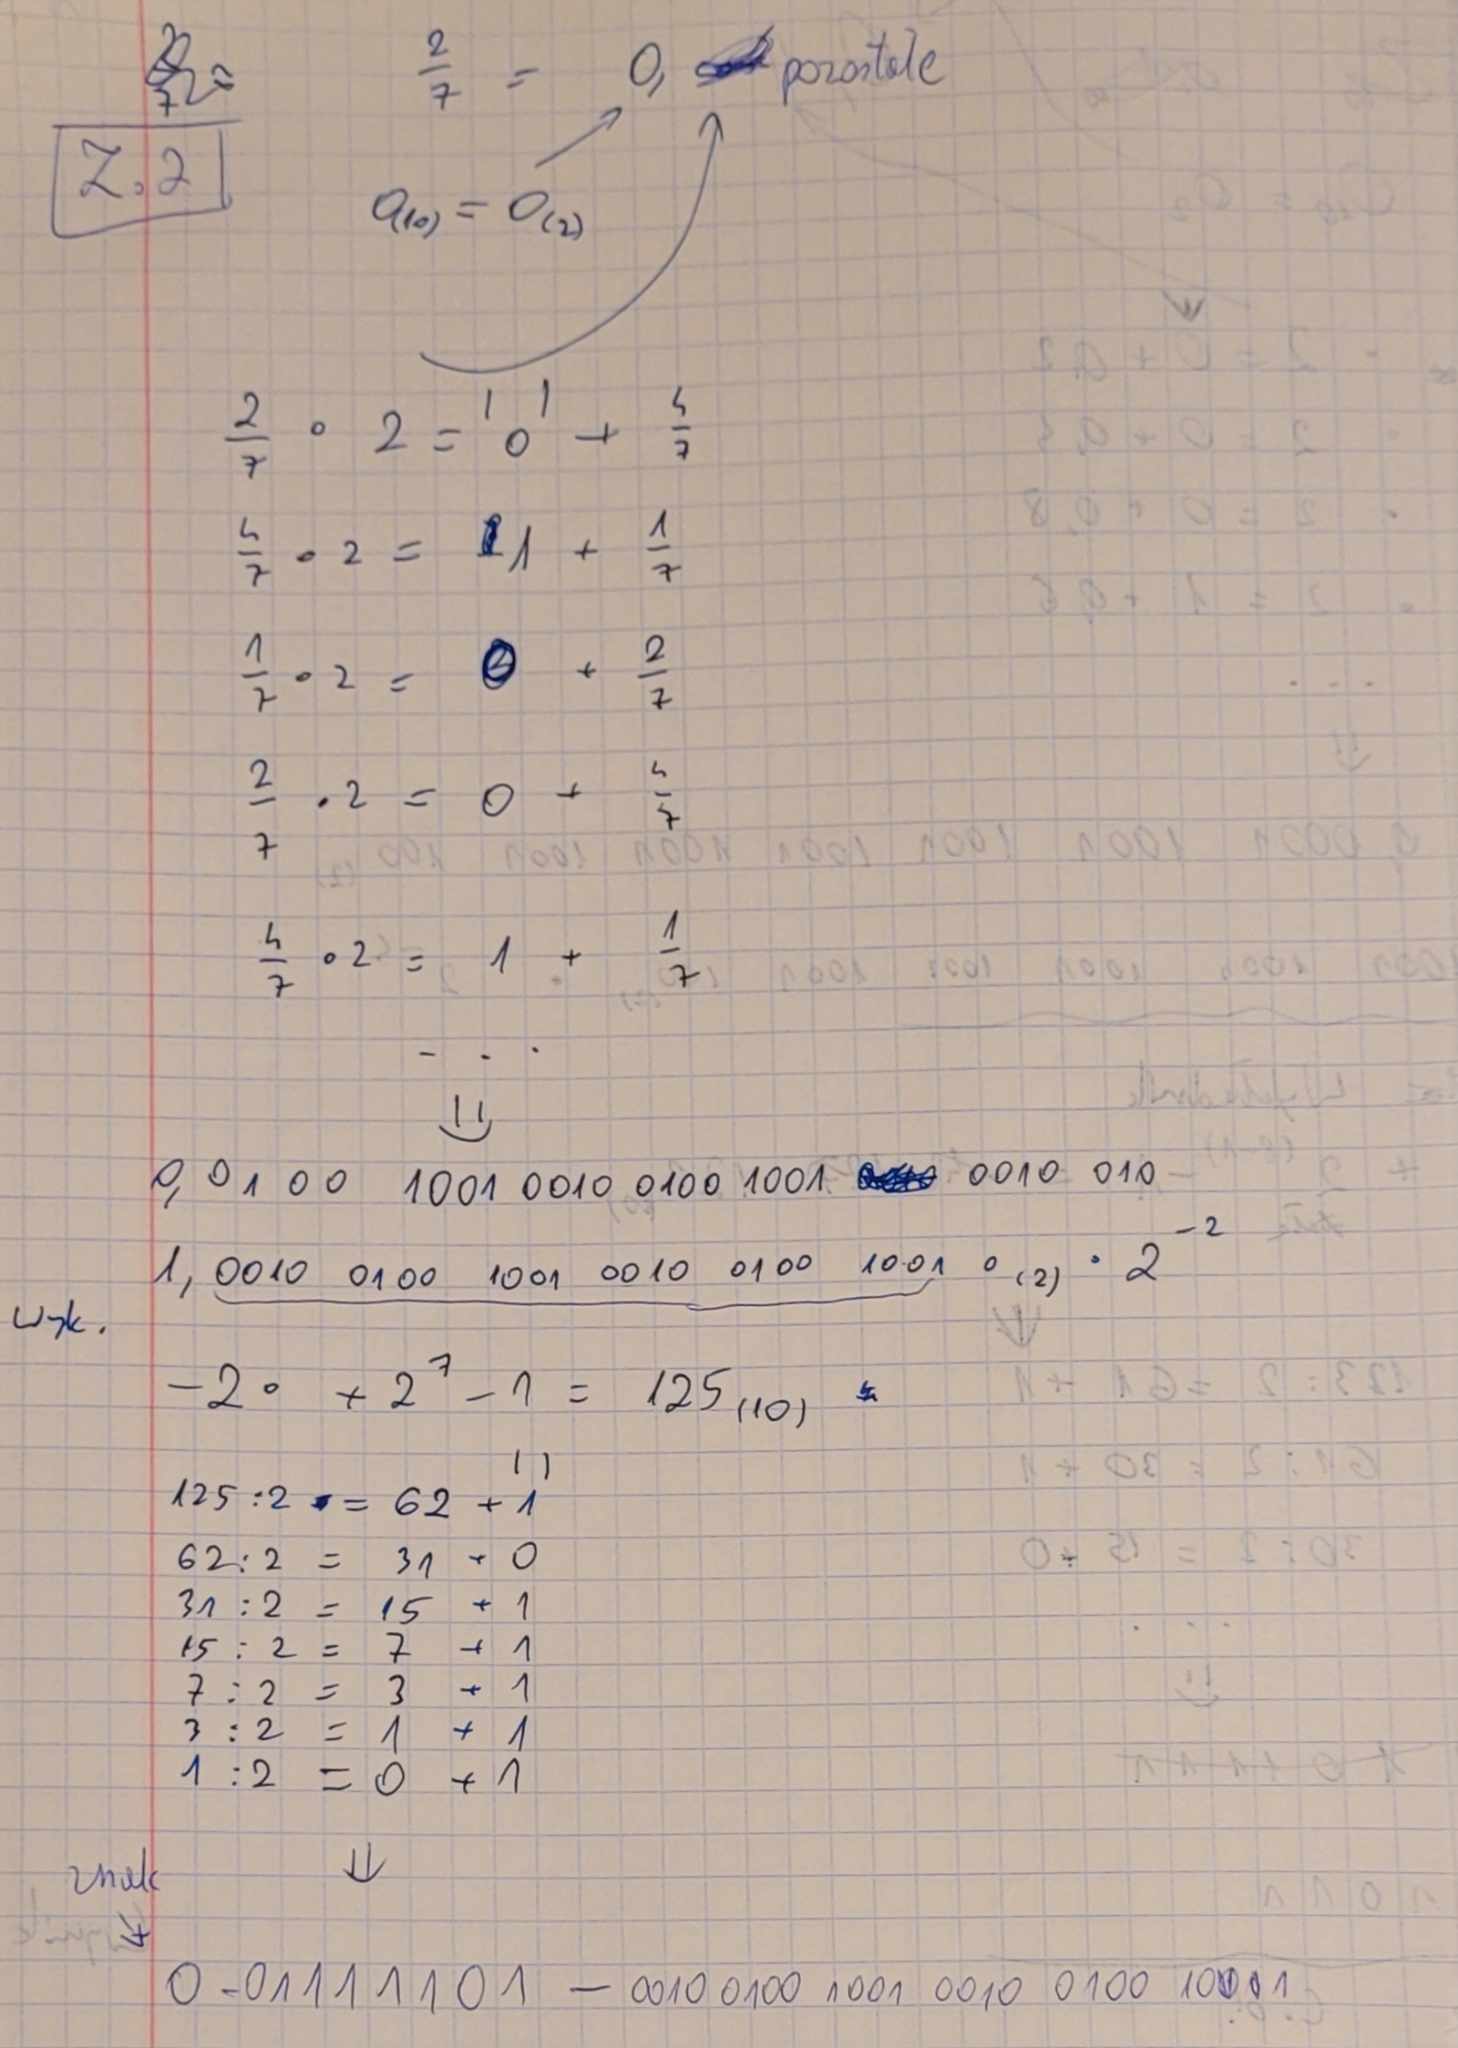 2/7 = 0, pozostałe
Z.2
0(10) = 0(2)
2/7 · 2 = 0 + 4/7
4/7 · 2 = 1 + 1/7
1/7 · 2 = 0 + 2/7
2/7 · 2 = 0 + 4/7
4/7 · 2 = 1 + 1/7
...
⇓
0,0100 1001 0010 0100 1001 0010 010
1,0010 0100 1001 0010 0100 1001 0 (2) · 2^-2
Wyk.
-2 · + 2^7 - 1 = 125(10)
125 : 2 = 62 + 1
62 : 2 = 31 + 0
31 : 2 = 15 + 1
15 : 2 = 7 + 1
7 : 2 = 3 + 1
3 : 2 = 1 + 1
1 : 2 = 0 + 1
znak ⇓
0 - 01111101 - 0010 0100 1001 0010 0100 1001